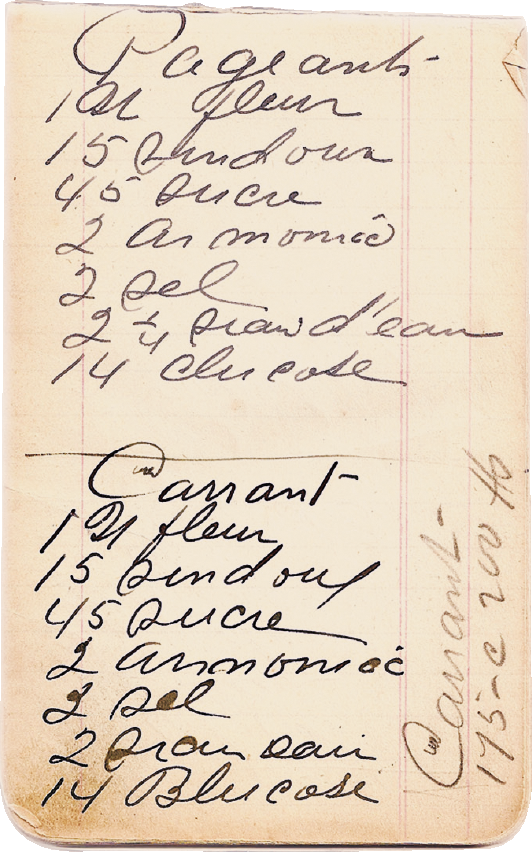 Pageant
1 M fleur
15 sindoux
45 sucre
2 armonic
2 sel
2 ¼ sciau d'eau
14 clucose
Currant
1 M fleur
15 sindoux
45 sucre
2 armoniac
2 sel
2 sciau eau
14 Glucose
Currant
175-c 200 lb